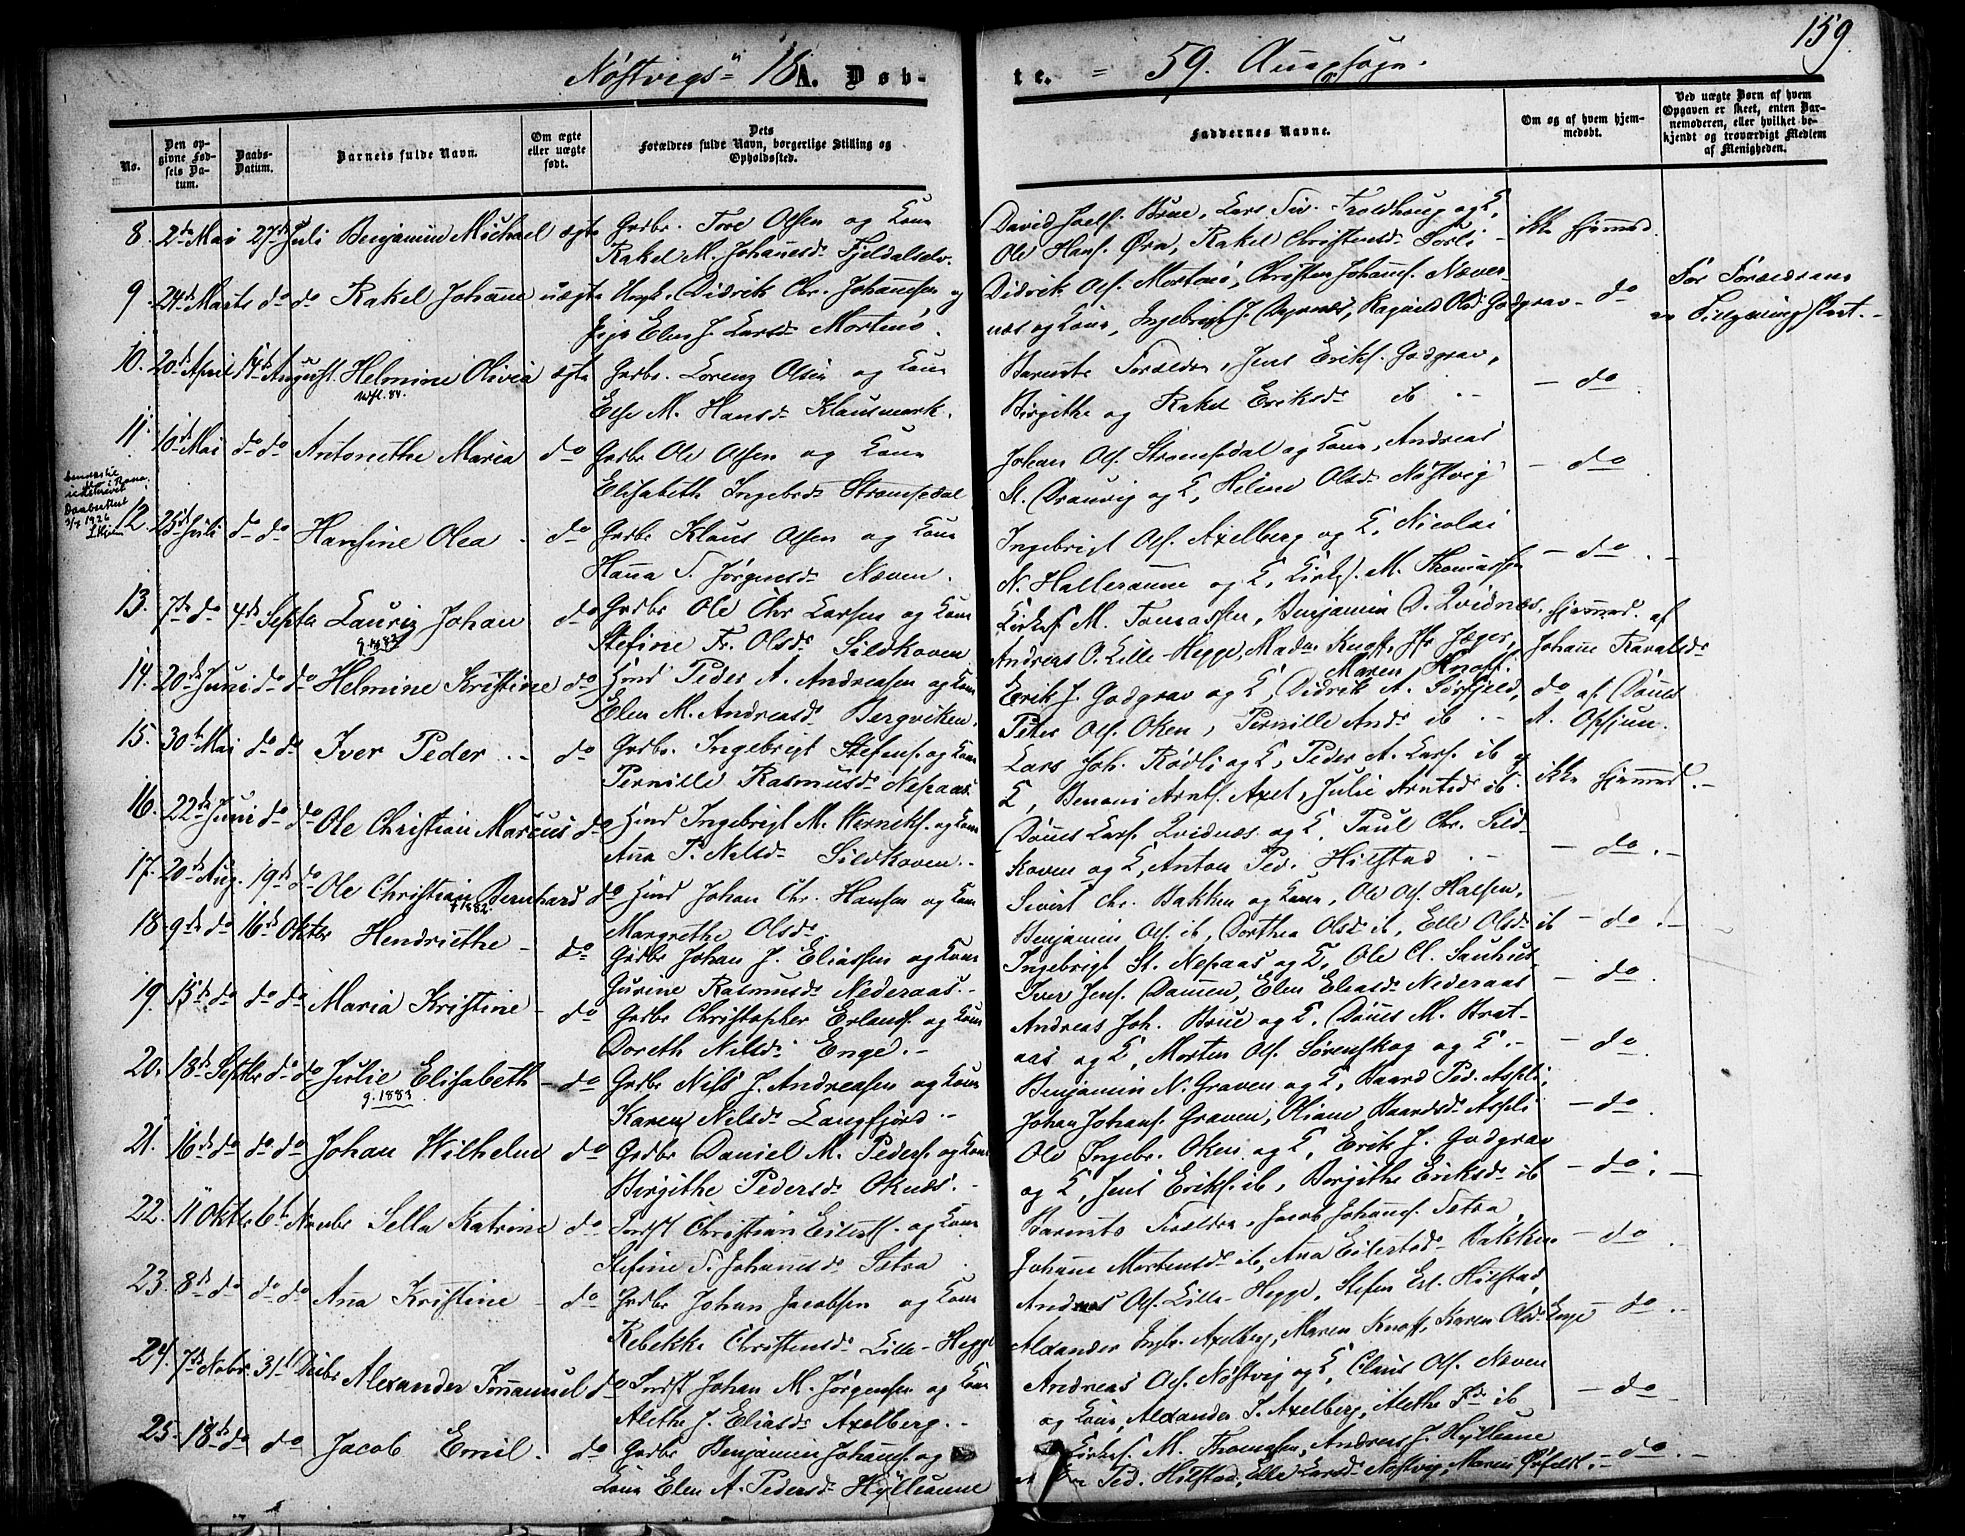 159.
Nøstvigs- 18 A. Døb-
te. = 59. Anexsogn.
No.
Den opgivne Fødsels Datum.
Daabs-Datum.
Barnets fulde Navn.
Om ægte eller uægte født.
Dets Forældres fulde Navn, borgerlige Stilling og Opholdssted.
Faddernes Navne.
Om og af hvem hjemmedøbt.
Ved uægte Børn af hvem Opgaven er skeet, enten Barnemoderen, eller hvilket bekjendt og troværdigt Medlem af Menigheden.
8. 2de Mai 27de Juli Benjamin Michael ægte Grdbr. Tore Olsen og Kone
Rakel M. Johannesdr Fjeldalselv.
David Joels. Brue, Lars Siv. Troldhaug og K,
Ole Hans. Øra, Rakel Christensdr Sorli
ikke hjemmed.
9. 24de Marts do do Rakel Johanne uægte Ungk. Didrik Chr. Johansen og
Pige Elen J. Larsdr Mortenø.
Didrik Ols. Mortenø, Christen Johans. Næver-
næs og Kone, Ingebrigt J. Dyrnæs, Ragnild Olsd. Godgrav
- do
10. 20de April 14de August Helmine Olivia ægte Grdbr. Lorenz Olsen og Kone
Else M. Hansdr Klausmark.
Barnets Forældre, Jens Eriks. Godgrav,
Birgithe og Rakel Eriksdr ib
- do
11. 10de Mai do do Antonethe Maria do Grdbr Ole Olsen og Kone
Elisabeth Ingebrdr Strømsdal
Johan Ols. Strømsdal og Kone, Andreas
St. Dranvig og K, Helene Olsdr Nøstvig
- do
12. 25de Juli do do Hansine Olea do Grdbr Klaus Olsen og Kone
Hanna S. Jørgensdr Næven.
Ingebrigt Ols. Axelberg og K, Nicolai
N. Halleraune og K, Kirkes. M. Thomassen
- do -
13. 7de do 4de Septbr Lauriz Johan do Grdbr Ole Chr Larsen og Kone
g. 1883
Stefine Fr. Olsdr Sildhoven
Kirkes M. Tomassen, Benjamin D. Qvidnæs,
Andreas O. Lille-Hegge, Madm Knoff, Jfr Jæger,
Maren Knoff.
hjemmed. af
14. 20de Juni do do Helmine Kristine do Hmd Peder A. Andreasen og Kone
Elen M. Andreasdr Bergviken.
Erik J. Godgrav og K, Didrik A. Sørfjeld,
Peter Ols. Oken, Pernille Andr ib
do af Dønes
15. 30te Mai do do Iver Peder do Grdbr. Ingebrigt Stefens. og Kone
Pernille Rasmusdr Nesaas
Lars Joh. Rødli og K, Peder A. Lars. ib og
K, Benoni Arnts. Axel, Julie Arntsdr ib.
ikke hjemmd. -
16. 22de Juni do do Ole Christian Marcus do Hmd Ingebrigt M. Werniks. og Kone
Ana P. Nilsdr Sildhoven.
Dønes Lars. Qvidnæs og K, Paul Chr. Sild-
hoven og K, Anton Ped. Hilstad
- do -
17. 20de Aug. 19de do Ole Christian Bernhard do Hmd Johan Chr. Hansen og Kone
Margrethe Olsdr
Sivert Chr. Bakken og Kone, Ole Ols. Halsen,
Benjamin Ols. ib, Dorthea Olsdr ib, Elle Olsdr ib
- do -
18. 9de do 16de Oktbr Hendriethe do Grdbr Johan J. Eliassen og Kone
Gurine Rasmusdr Nederaas.
Ingebrigt St. Nesaas og K, Ole Cl. Sauhus-
Iver Jens. Dønnen, Elen Eliasdr Nederaas
- do
19. 15de do do do Maria Kristine do Grdbr Christopher Erlands. og Kone
Doreth Nilsdr Enge.
Andreas Joh. Brue og K, Dønes M. Brat-
aas og K, Morten Ols. Sørenskog og K.
- do
20. 18de Septbr do do Julie Elisabeth do Grdbr Nils J. Andreasen og Kone
g. 1883
Karen Nilsdr Langfjord.
Benjamin N. Graven og K, Baard Ped. Aspli,
Johan Johans. Graven, Oliane Baardsdr Aspli
- do
21. 16de do do do Johan Wilhelm do Grdbr Daniel M. Peders. og Kone
Birgithe Pedersdr Oknæs.
Ole Ingebr. Oken og K, Erik J. Godgrav
og K, Jens Eriks. ib, Birgithe Eriksdr ib
- do. -
22. 11 Oktbr 6te Novbr Sella Katrine do Indst Christian Eilerts. og Kone
Stefine S. Johannesdr Setra
Barnets Forældre, Jacob Johans. Setra,
Johanne Mortensdr ib, Ana Eilertsdr Bakken
- do
23. 8de do do do Ana Kristine do Grdbr Johan Jacobsen og Kone
Rebekke Christensdr Lille-Hegge
Andreas Ols. Lille-Hegge, Stefen Erl. Hilstad,
Alexander Ingbr. Axelberg, Maren Knoff, Karen Olsdr Enge
- do -
24. 7de Novbr 31te Decbr Alexander Immanuel do Indst Johan M. Jørgensen og Kone
Alethe J. Eliasdr Axelberg.
Andreas Ols. Nøstvig og K, Claus Ols. Næven
og Kone, Alexander I. Axelberg, Alethe Fdr ib
- do
25. 18de do do Jacob Emil. do Grdbr Benjamin Johans. og
Kone Elen A. Pedersdr Hylleaune
Kirkes. M. Thomassen, Andreas J. Hylleaune
Ped. Hilstad, Elle Larsdr Nøstvig, Maren Ørfeldt.
- do. -